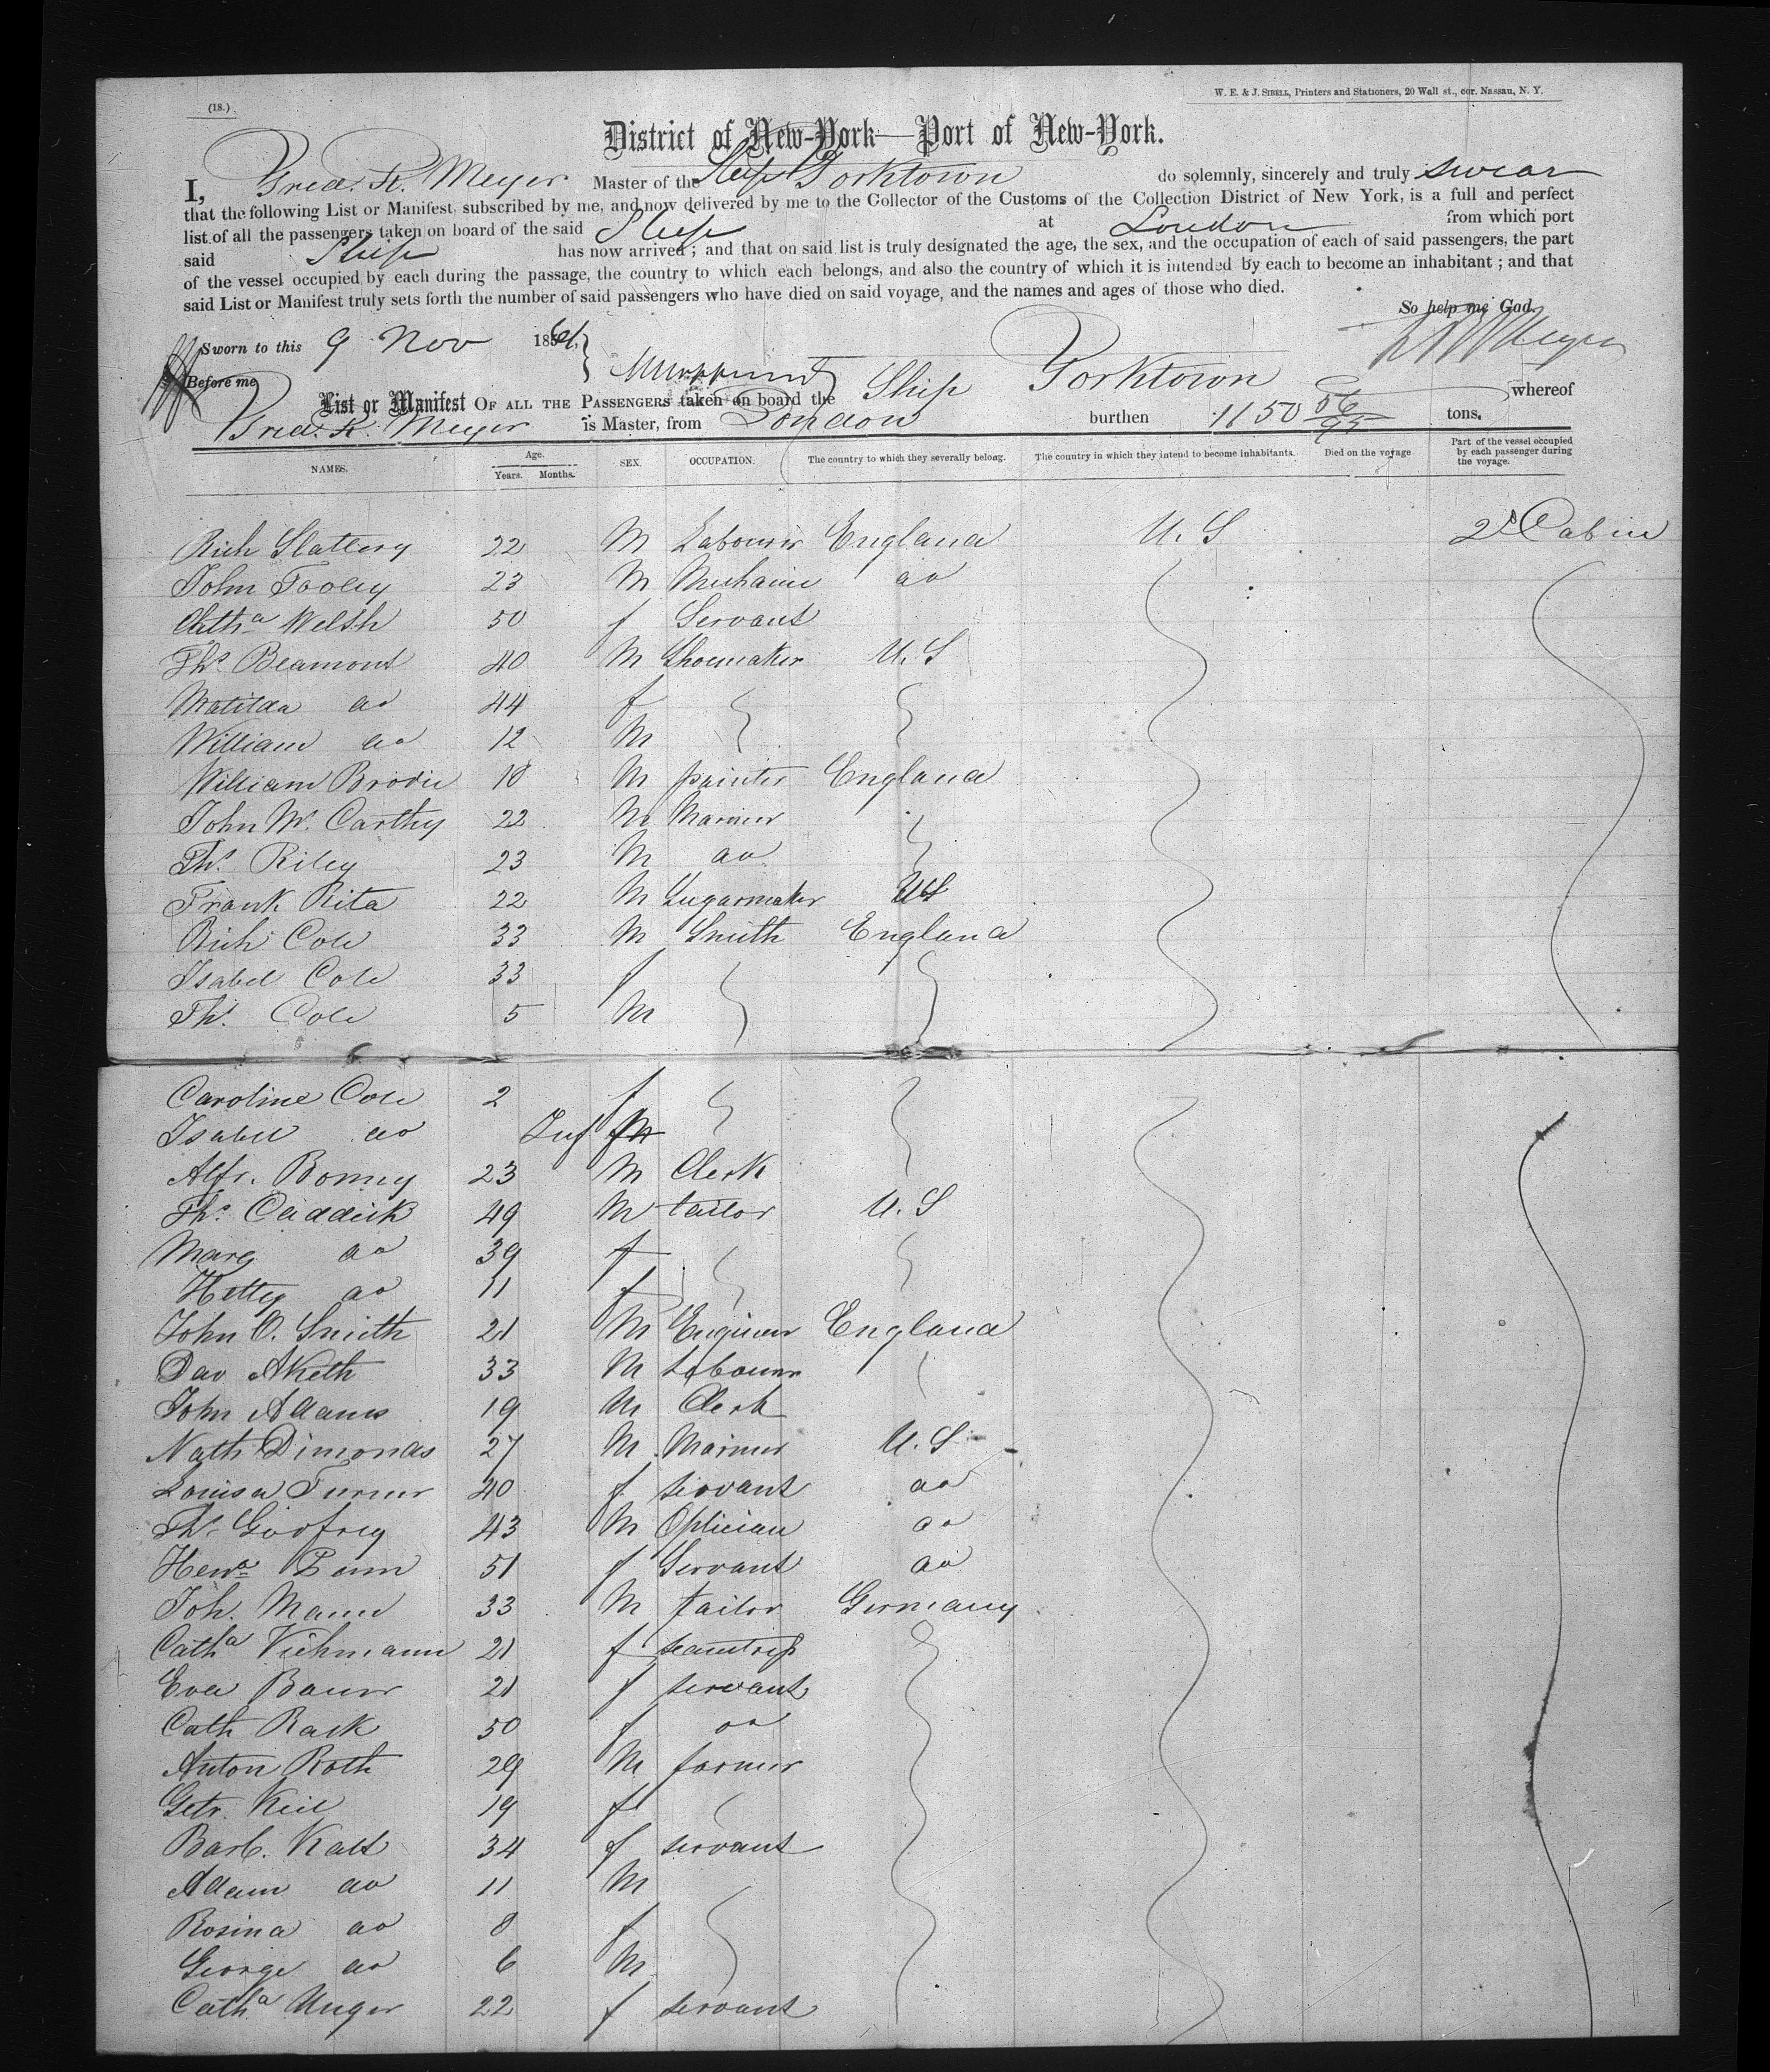 (18.)
W. E. & J. SIBELL, Printers and Stationers, 20 Wall st., cor. Nassau, N. Y.
District of New-York—Port of New-York.
I, Fred. K. Meyer Master of the Ship Yorktown do solemnly, sincerely and truly swear
that the following List or Manifest, subscribed by me, and now delivered by me to the Collector of the Customs of the Collection District of New York, is a full and perfect
list of all the passengers taken on board of the said Ship at London from which port
said Ship has now arrived; and that on said list is truly designated the age, the sex, and the occupation of each of said passengers, the part
of the vessel occupied by each during the passage, the country to which each belongs, and also the country of which it is intended by each to become an inhabitant; and that
said List or Manifest truly sets forth the number of said passengers who have died on said voyage, and the names and ages of those who died.
So help me God.
Sworn to this 9 Nov 1861
Before me
List or Manifest OF ALL THE PASSENGERS taken on board the Ship Yorktown whereof
Fred. K. Meyer is Master, from London burthen 1150 56/95 tons.
NAMES. Age. Years. Months. SEX. OCCUPATION. The country to which they severally belong. The country in which they intend to become inhabitants. Died on the voyage Part of the vessel occupied by each passenger during the voyage.
Rich Slattery 22 M Labourer England U.S 2d Cabin
John Tooley 23 M Mechanic do
Catha Welsh 50 f Servant
Ths. Beamont 40 M Shoemaker U.S
Matilda do 44 f
William do 12 M
William Brodie 18 M painter England
John Mc. Carthy 22 M Mariner
Ths. Riley 23 M do
Frank Rita 22 M Sugarmaker US
Rich Cole 33 M Smith England
Isabel Cole 33 f
Ths. Cole 5 M
Caroline Cole 2 f
Isabel do Inf f
Alfr. Bonney 23 M Clerk
Ths. Caddick 49 M tailor U.S
Marg do 39 f
Hetty do 11 f
John O. Smith 21 M Engineer England
Dav Aketh 33 M Labourer
John Adams 19 M Clerk
Nath Dimonds 27 M Mariner U.S
Louisa Turner 40 f servant do
Ths. Godfrey 43 M Optician do
Hena Penn 51 f Servant do
Joh. Mann 33 M tailor Germany
Catha Viehmann 21 f seamtress
Eva Bauer 21 f servant
Cath Rask 50 f do
Anton Roth 29 M farmer
Getr. Keil 19 f
Barb. Kalt 34 f servant
Adam do 11 M
Rosina do 8 f
George do 6 M
Catha Unger 22 f servant